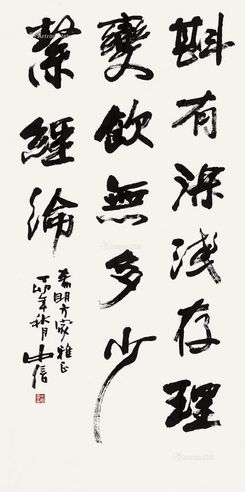 斟有深浅存理
燮飲無多少
繫經綸
希明方家雅正
丁卯年秋月